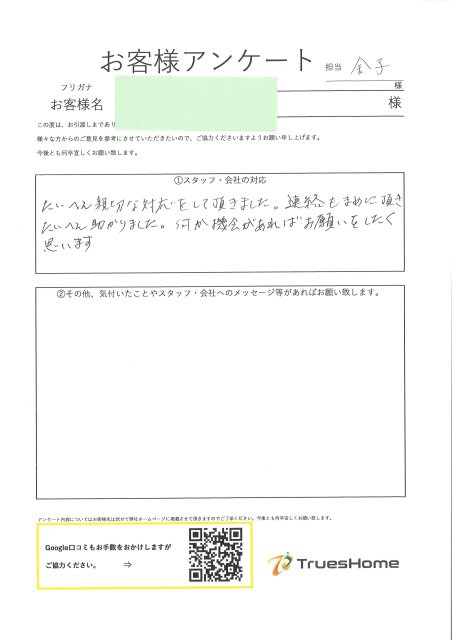 お客様アンケート 担当 金子
フリガナ 様
お客様名 様
この度は、お引渡しまであり
様々な方からのご意見を参考にさせていただきたいので、ご協力くださいますようお願い申し上げます。
今後とも何卒宜しくお願い致します。
①スタッフ・会社の対応
たいへん親切な対応をして頂きました。連絡もまめに頂き
たいへん助かりました。何か機会があればお願いをしたく
思います
②その他、気付いたことやスタッフ・会社へのメッセージ等があればお願い致します。
アンケート内容についてはお客様名は伏せて弊社ホームページに掲載させて頂きますのでご了承ください。今後とも何卒宜しくお願い致します。
Google口コミもお手数をおかけしますが
ご協力ください。 ⇒
TruesHome